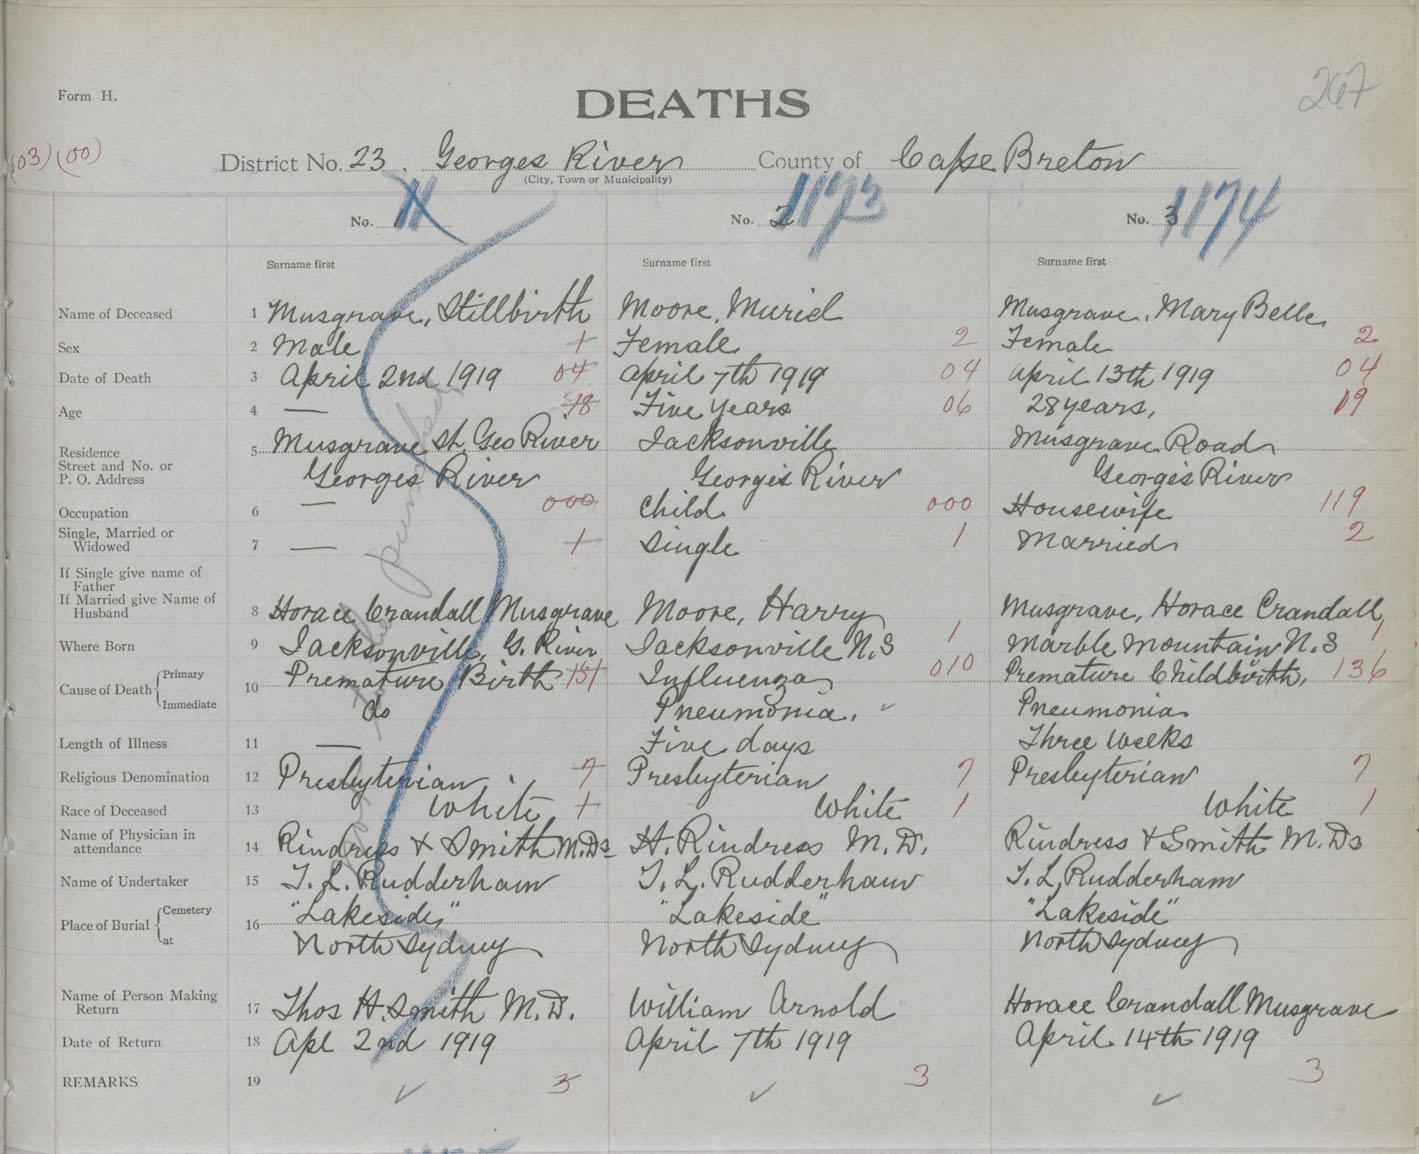 267
Form H.
DEATHS
(03) (00)
District No. 23. Georges River County of Cape Breton
(City, Town or Municipality)
No. 1 No. 2 1173 No. 3 1174
Surname first Surname first Surname first
Name of Deceased 1 Musgrave, Stillbirth Moore, Muriel Musgrave, Mary Belle
Sex 2 Male + Female 2 Female 2
Date of Death 3 April 2nd 1919 04 April 7th 1919 04 April 13th 1919 04
Age 4 — 48 Five years 06 28 years, 09
Residence
Street and No. or
P. O. Address
5 Musgrave St. Geo River Jacksonville Musgrave Road
Georges River George's River George's River
Occupation 6 — 000 Child 000 Housewife 119
Single, Married or
Widowed
7 — + Single 1 Married 2
If Single give name of
Father
If Married give Name of
Husband
8 Horace Crandall Musgrave Moore, Harry Musgrave, Horace Crandall
Where Born 9 Jacksonville, G. River Jacksonville N.S 1 Marble Mountain N.S 1
Cause of Death Primary Immediate
10 Premature Birth 151 Influenza 010 Premature Childbirth, 136
do Pneumonia. Pneumonia
Length of Illness 11 — Five days Three weeks
Religious Denomination 12 Presbyterian 7 Presbyterian 7 Presbyterian 7
Race of Deceased 13 White + White 1 White 1
Name of Physician in
attendance
14 Rindress & Smith M.Ds H. Rindress M.D. Rindress & Smith M.Ds
Name of Undertaker 15 T. L. Rudderham T. L. Rudderham T. L. Rudderham
Place of Burial Cemetery at
16 "Lakeside" "Lakeside" "Lakeside"
North Sydney North Sydney North Sydney
Name of Person Making
Return
17 Thos H. Smith M.D. William Arnold Horace Crandall Musgrave
Date of Return 18 Apl 2nd 1919 April 7th 1919 April 14th 1919
REMARKS 19 ✓ 3 ✓ 3 ✓ 3